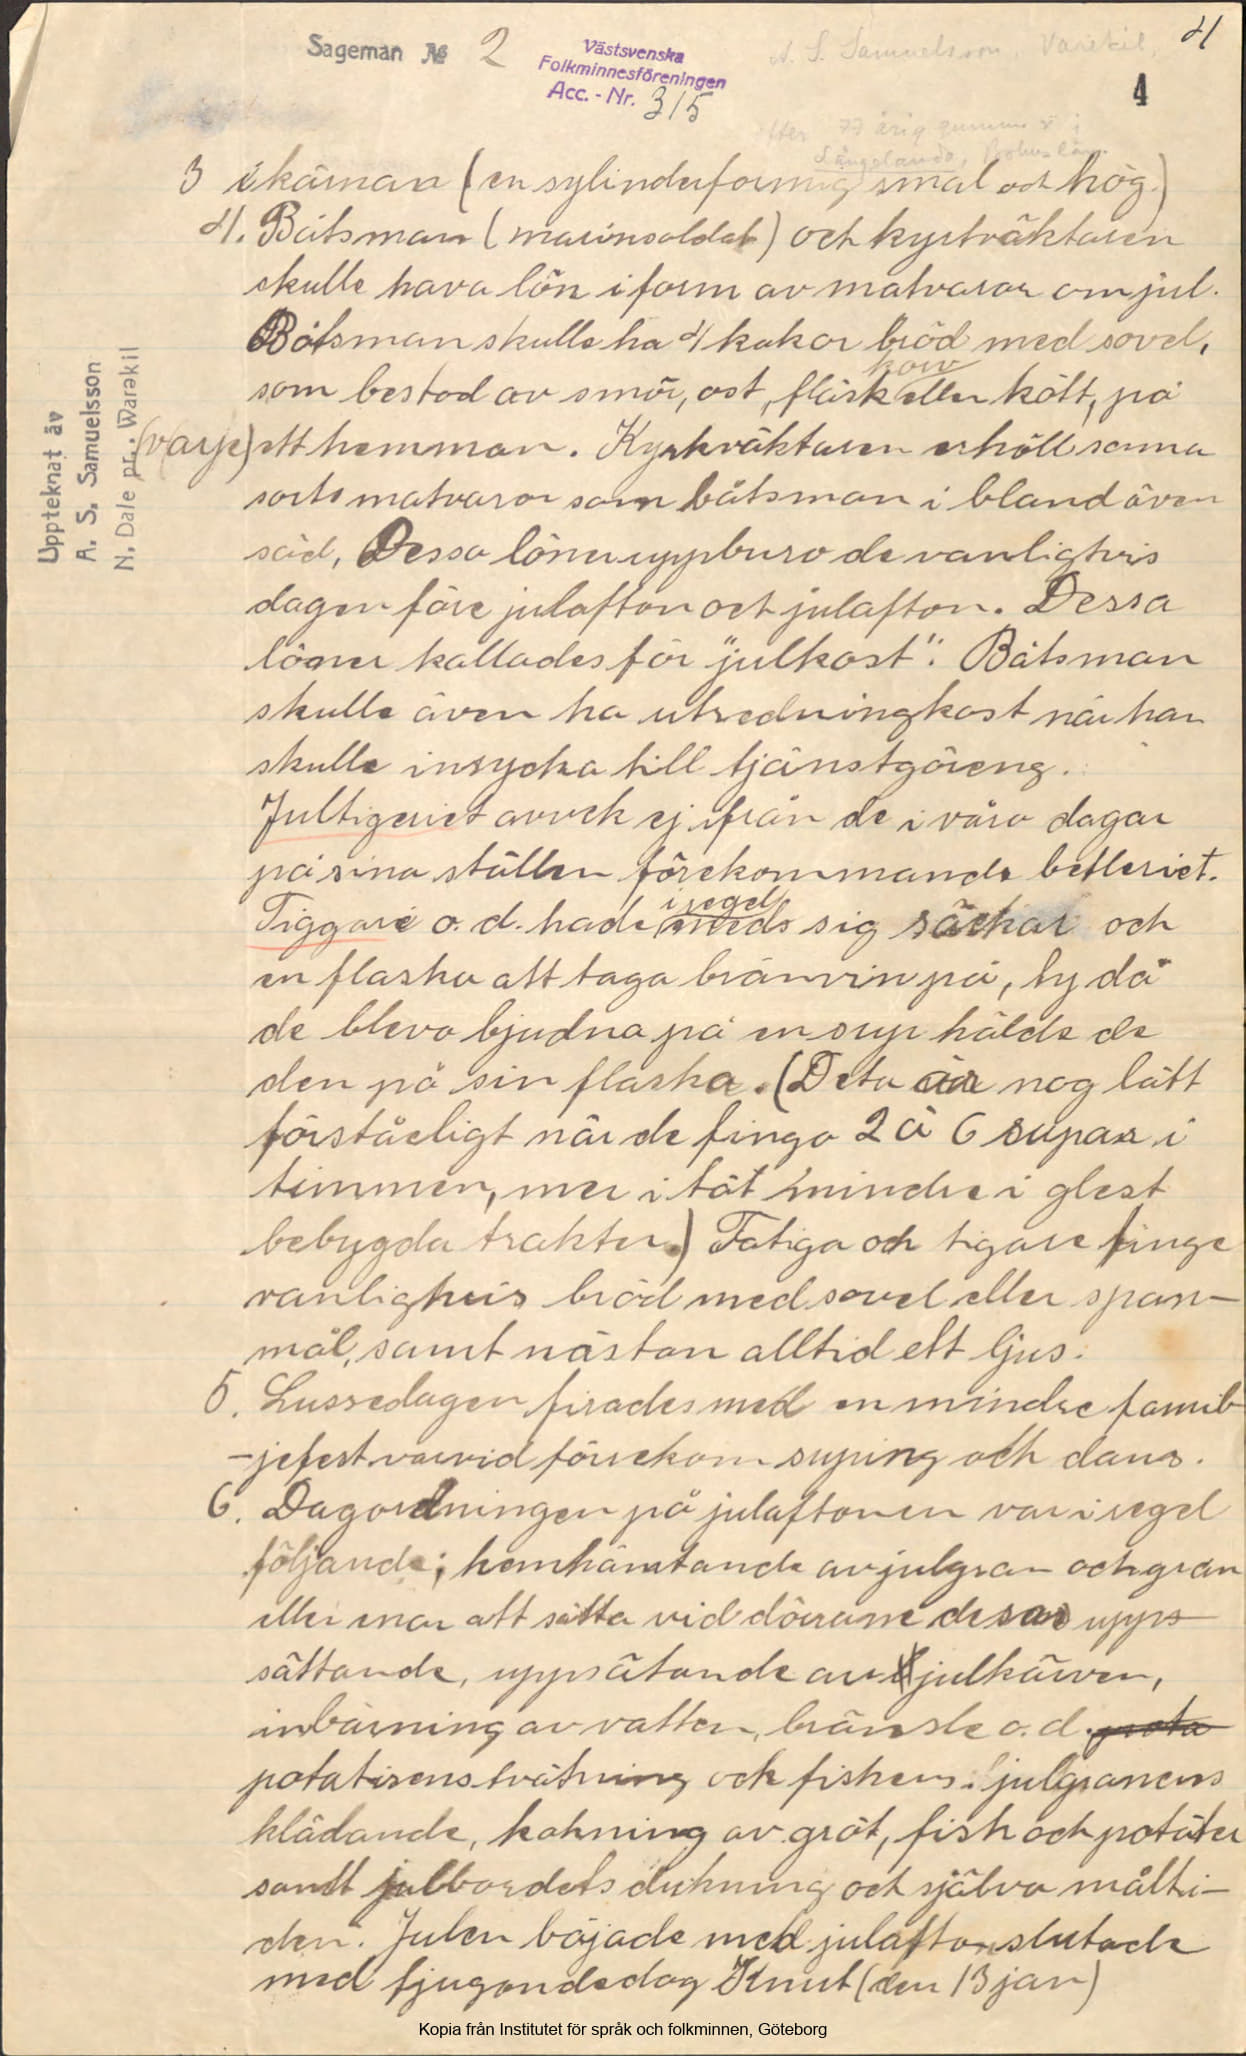 Sageman № 2
Västsvenska
Folkminnesföreningen
Acc. - Nr. 315
A. S. Samuelsson Varekil,
4
4
efter 77 årig gumma i
Långelanda, Bohuslän.
Upptecknat av
A. S. Samuelsson
N. Dale pr. Warekil
3 i kärnan (en sylinderformig smal och hög.)
4. Båtsman (marinsoldat) och kyrkväktaren
skulle hava lön i form av matvaror om jul.
Båtsman skulle ha 4 kakor bröd med sovel,
korv
som bestod av smör, ost, fläsk eller kött, på
(varje) ett hemman. Kyrkväktaren erhöll sama
sorts matvaror som båtsman i bland även
säd, Dessa löner uppburo de vanligtvis
dagen före julafton och julafton. Dessa
löner kallades för "julkost". Båtsman
skulle även ha utredningkost när han
skulle inrycka till tjänstgöreng.
Jultigeriet avvek ej ifrån de i våra dagar
på sina ställen förekommande betleriet.
i regel
Tiggare o. d. hade med sig säckar och
en flaska att taga bränvin på, ty då
de blevo bjudna på en sup hälde de
den på sin flaska. (Deta är nog lätt
förståeligt när de fingo 2 à 6 supar i
timmen, mer i tät mindre i glest
bebygda trakter.) Fatiga och tigare finge
vanligtvis bröd med sovel eller span-
mål, samt nästan alltid ett ljus.
5. Lussedagen firades med en mindre famil-
-jefest varvid förekom suping och dans.
6. Dagordningen på julaftonen var i regel
följande; hemhämtande av julgran och gran
eller enar att sätta vid dörrarne desas upps
sättande, uppsätande av julkärven,
inbärning av vatten, bränsle o. d. pota
potatisens tvätning och fiskens. julgranens
klädande, kokning av gröt, fisk och potäter
samt julbordets dukning och själva målti-
den. Julen böjade med julafton slutade
med tjugondedag Knut (den 13 jan)
Kopia från Institutet för språk och folkminnen, Göteborg